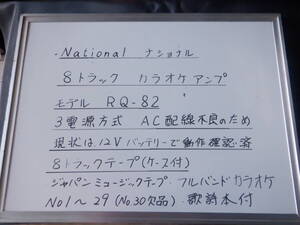 ・National ナショナル
8トラック カラオケアンプ
モデル RQ-82
3電源方式 AC配線不良のため
現状は12Vバッテリーで動作確認済
8トラックテープ(ケース付)
ジャパンミュージックテープ フルバンドカラオケ
No1～29(No.30欠品) 歌詩本付